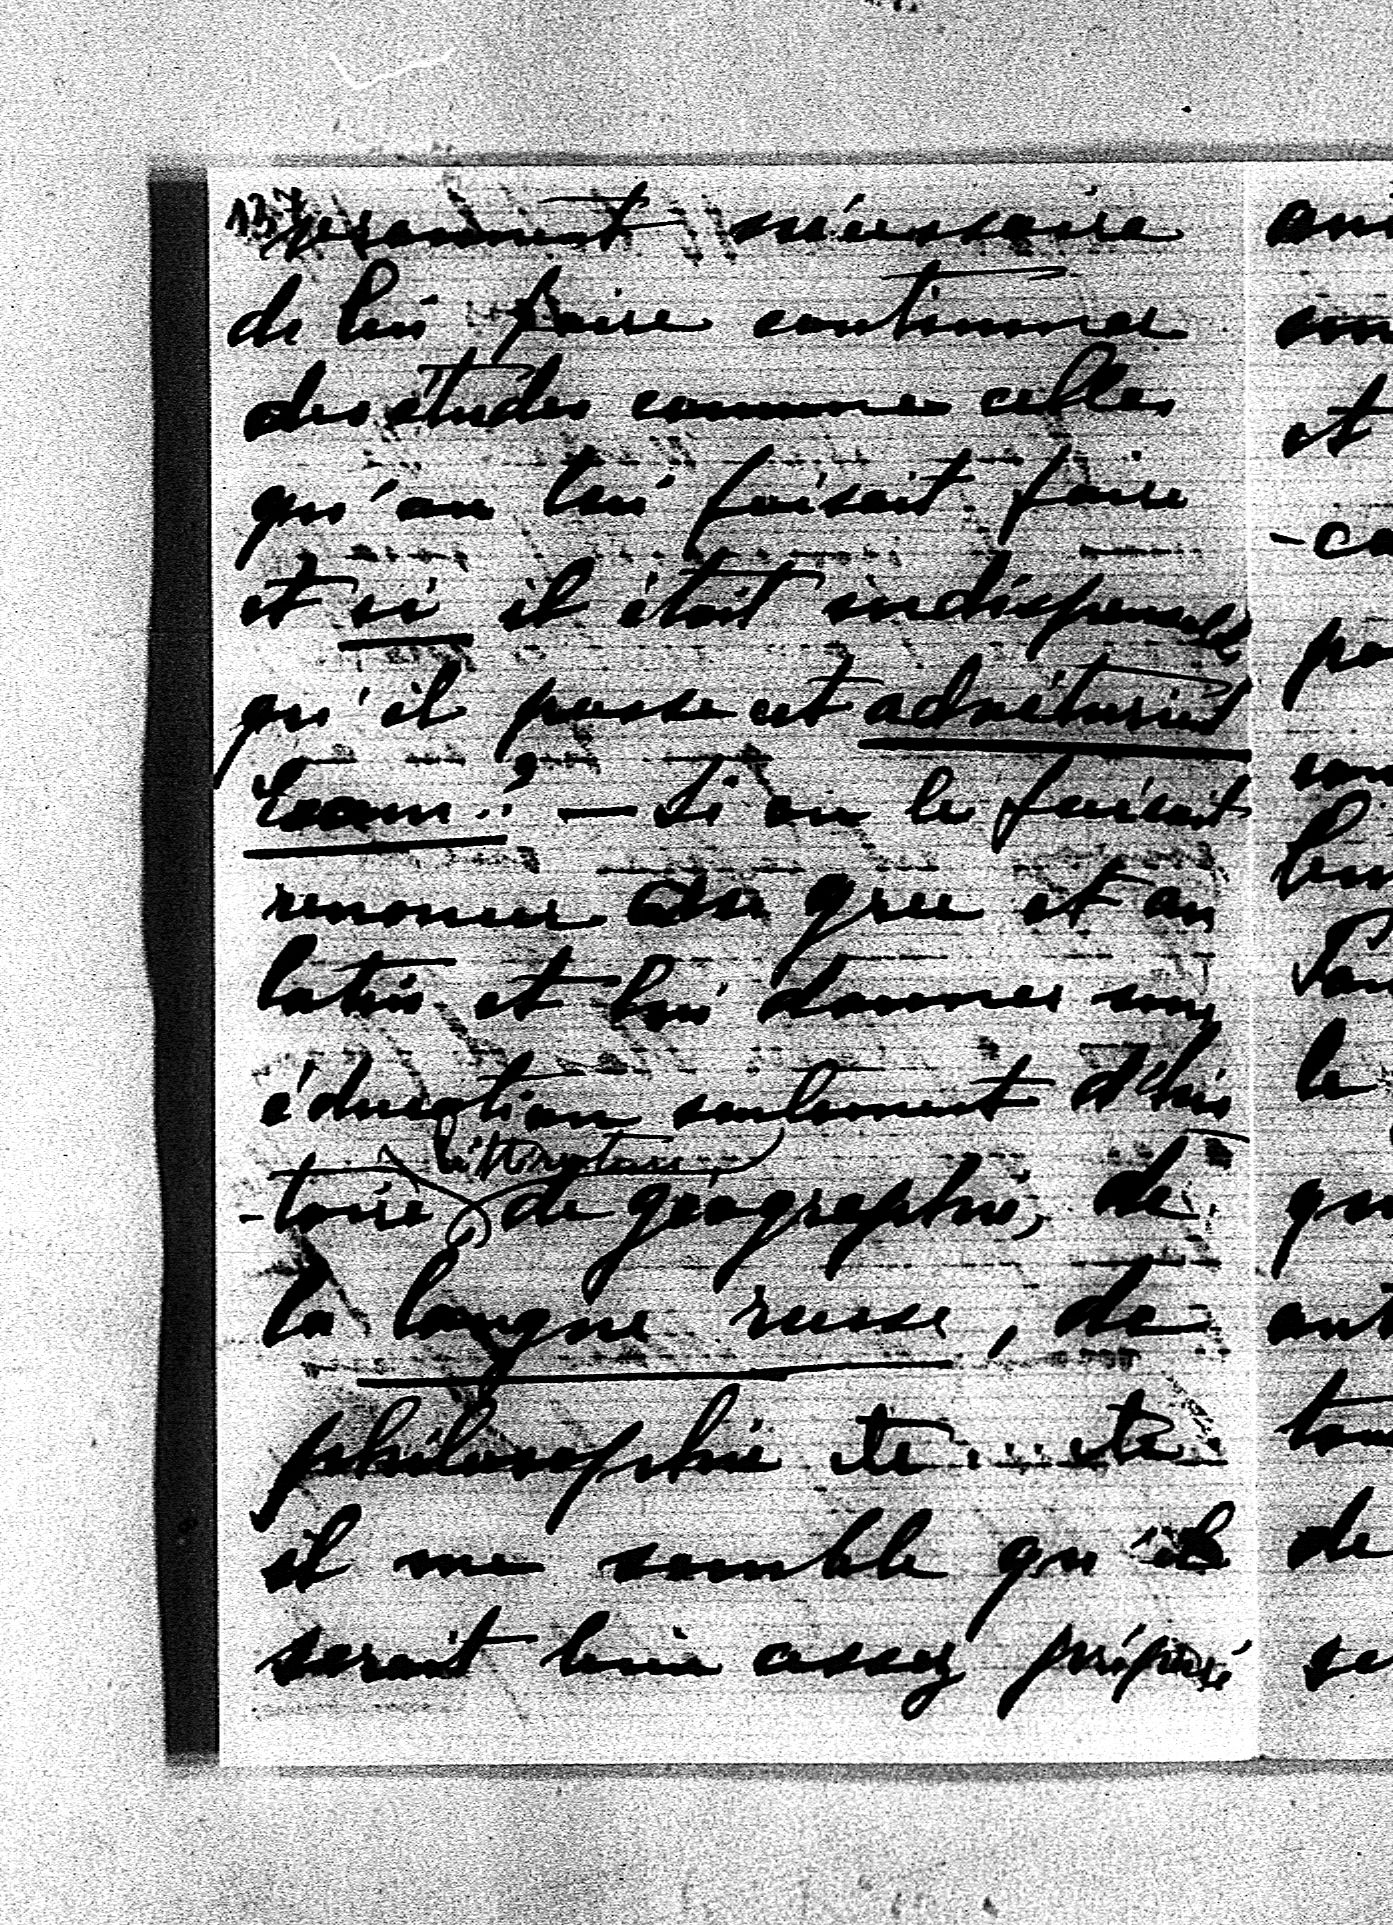 137
nécessaire
de lui faire continuer
des études comme celles
qu'on lui faisait faire
et si il était indispensable
qu'il passe cet abiturient
Exam.? — Si on le faisait
renoncer au grec et au
latin et lui donner une
éducation seulement d'his
-toire, de littérature, de géographie, de
la langue russe, de
philosophie etc ... etc
il me semble qu'il
serait bien assez préparé